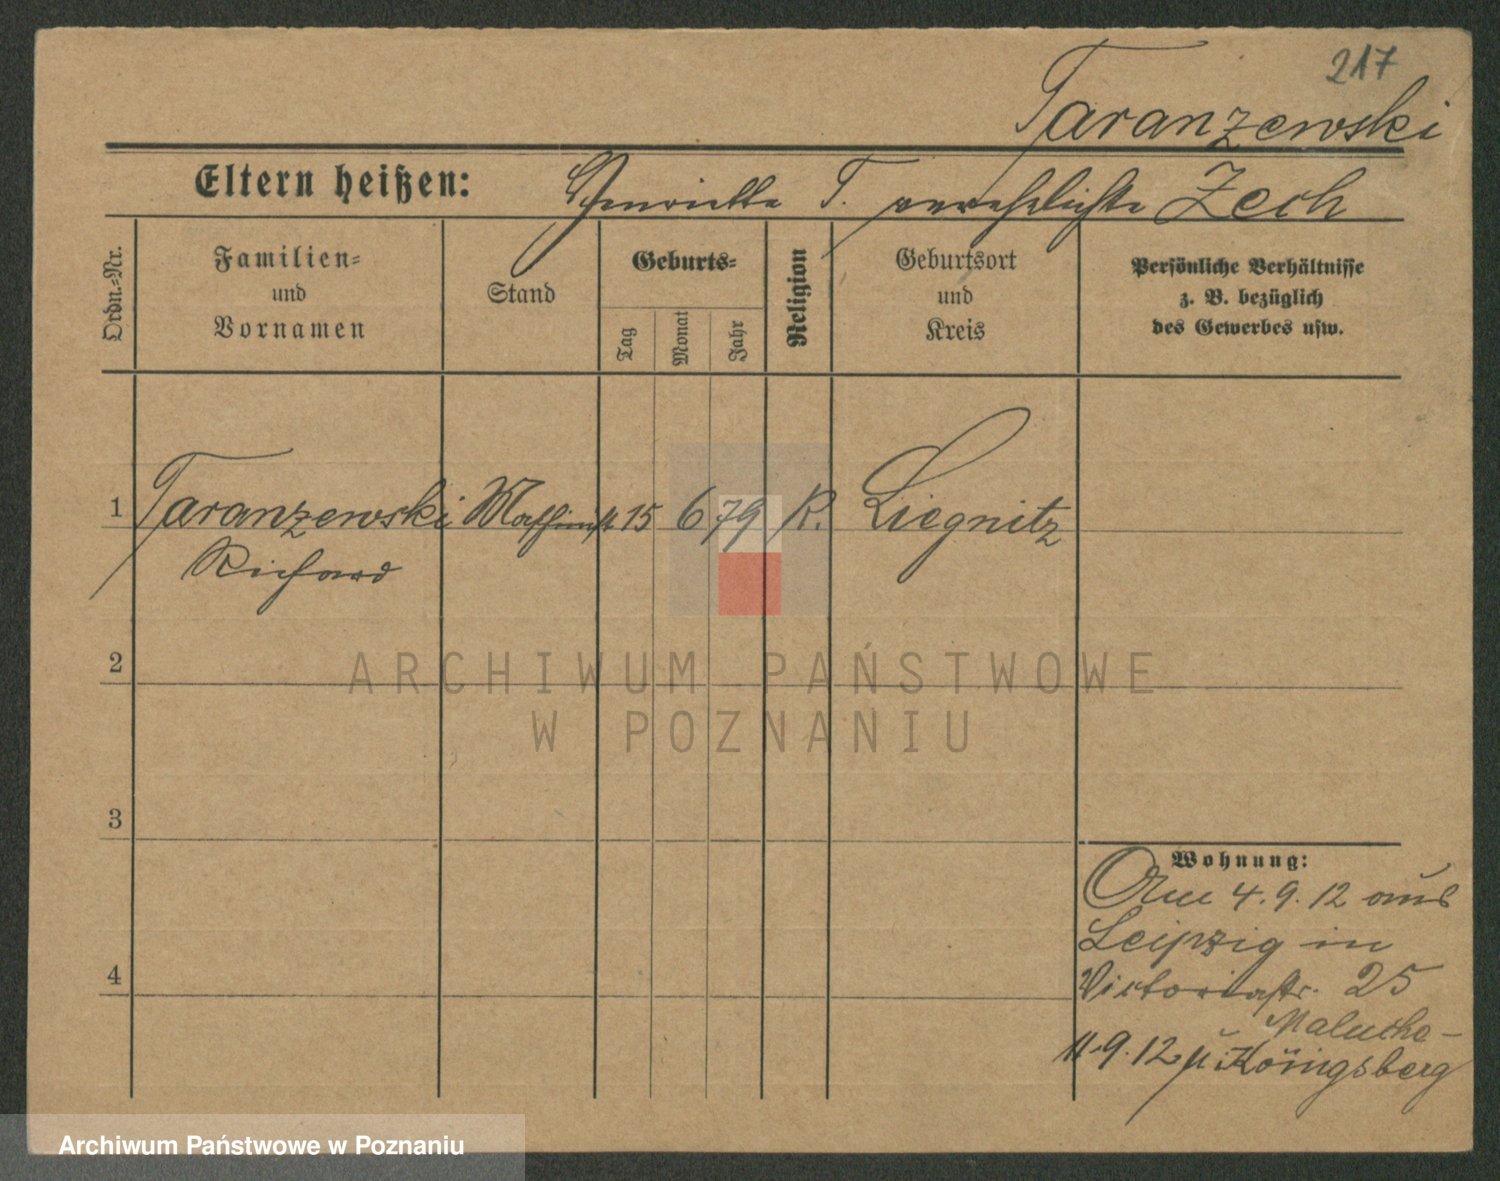 217
Taranzewski
Eltern heißen: Henriette T. verehelichte Zech
Ordn.-Nr.
Familien-
und
Vornamen
Stand
Geburts-
Tag
Monat
Jahr
Religion
Geburtsort
und
Kreis
Persönliche Verhältnisse
z. B. bezüglich
des Gewerbes usw.
1 Taranzewski Maschinist 15 6 79 K. Liegnitz
Richard
2
3
4
Wohnung:
Am 4.9.12 aus
Leipzig in
Victoriastr. 25
Malucha-
11.9.12 n. Königsberg
ARCHIWUM PAŃSTWOWE
W POZNANIU
Archiwum Państwowe w Poznaniu